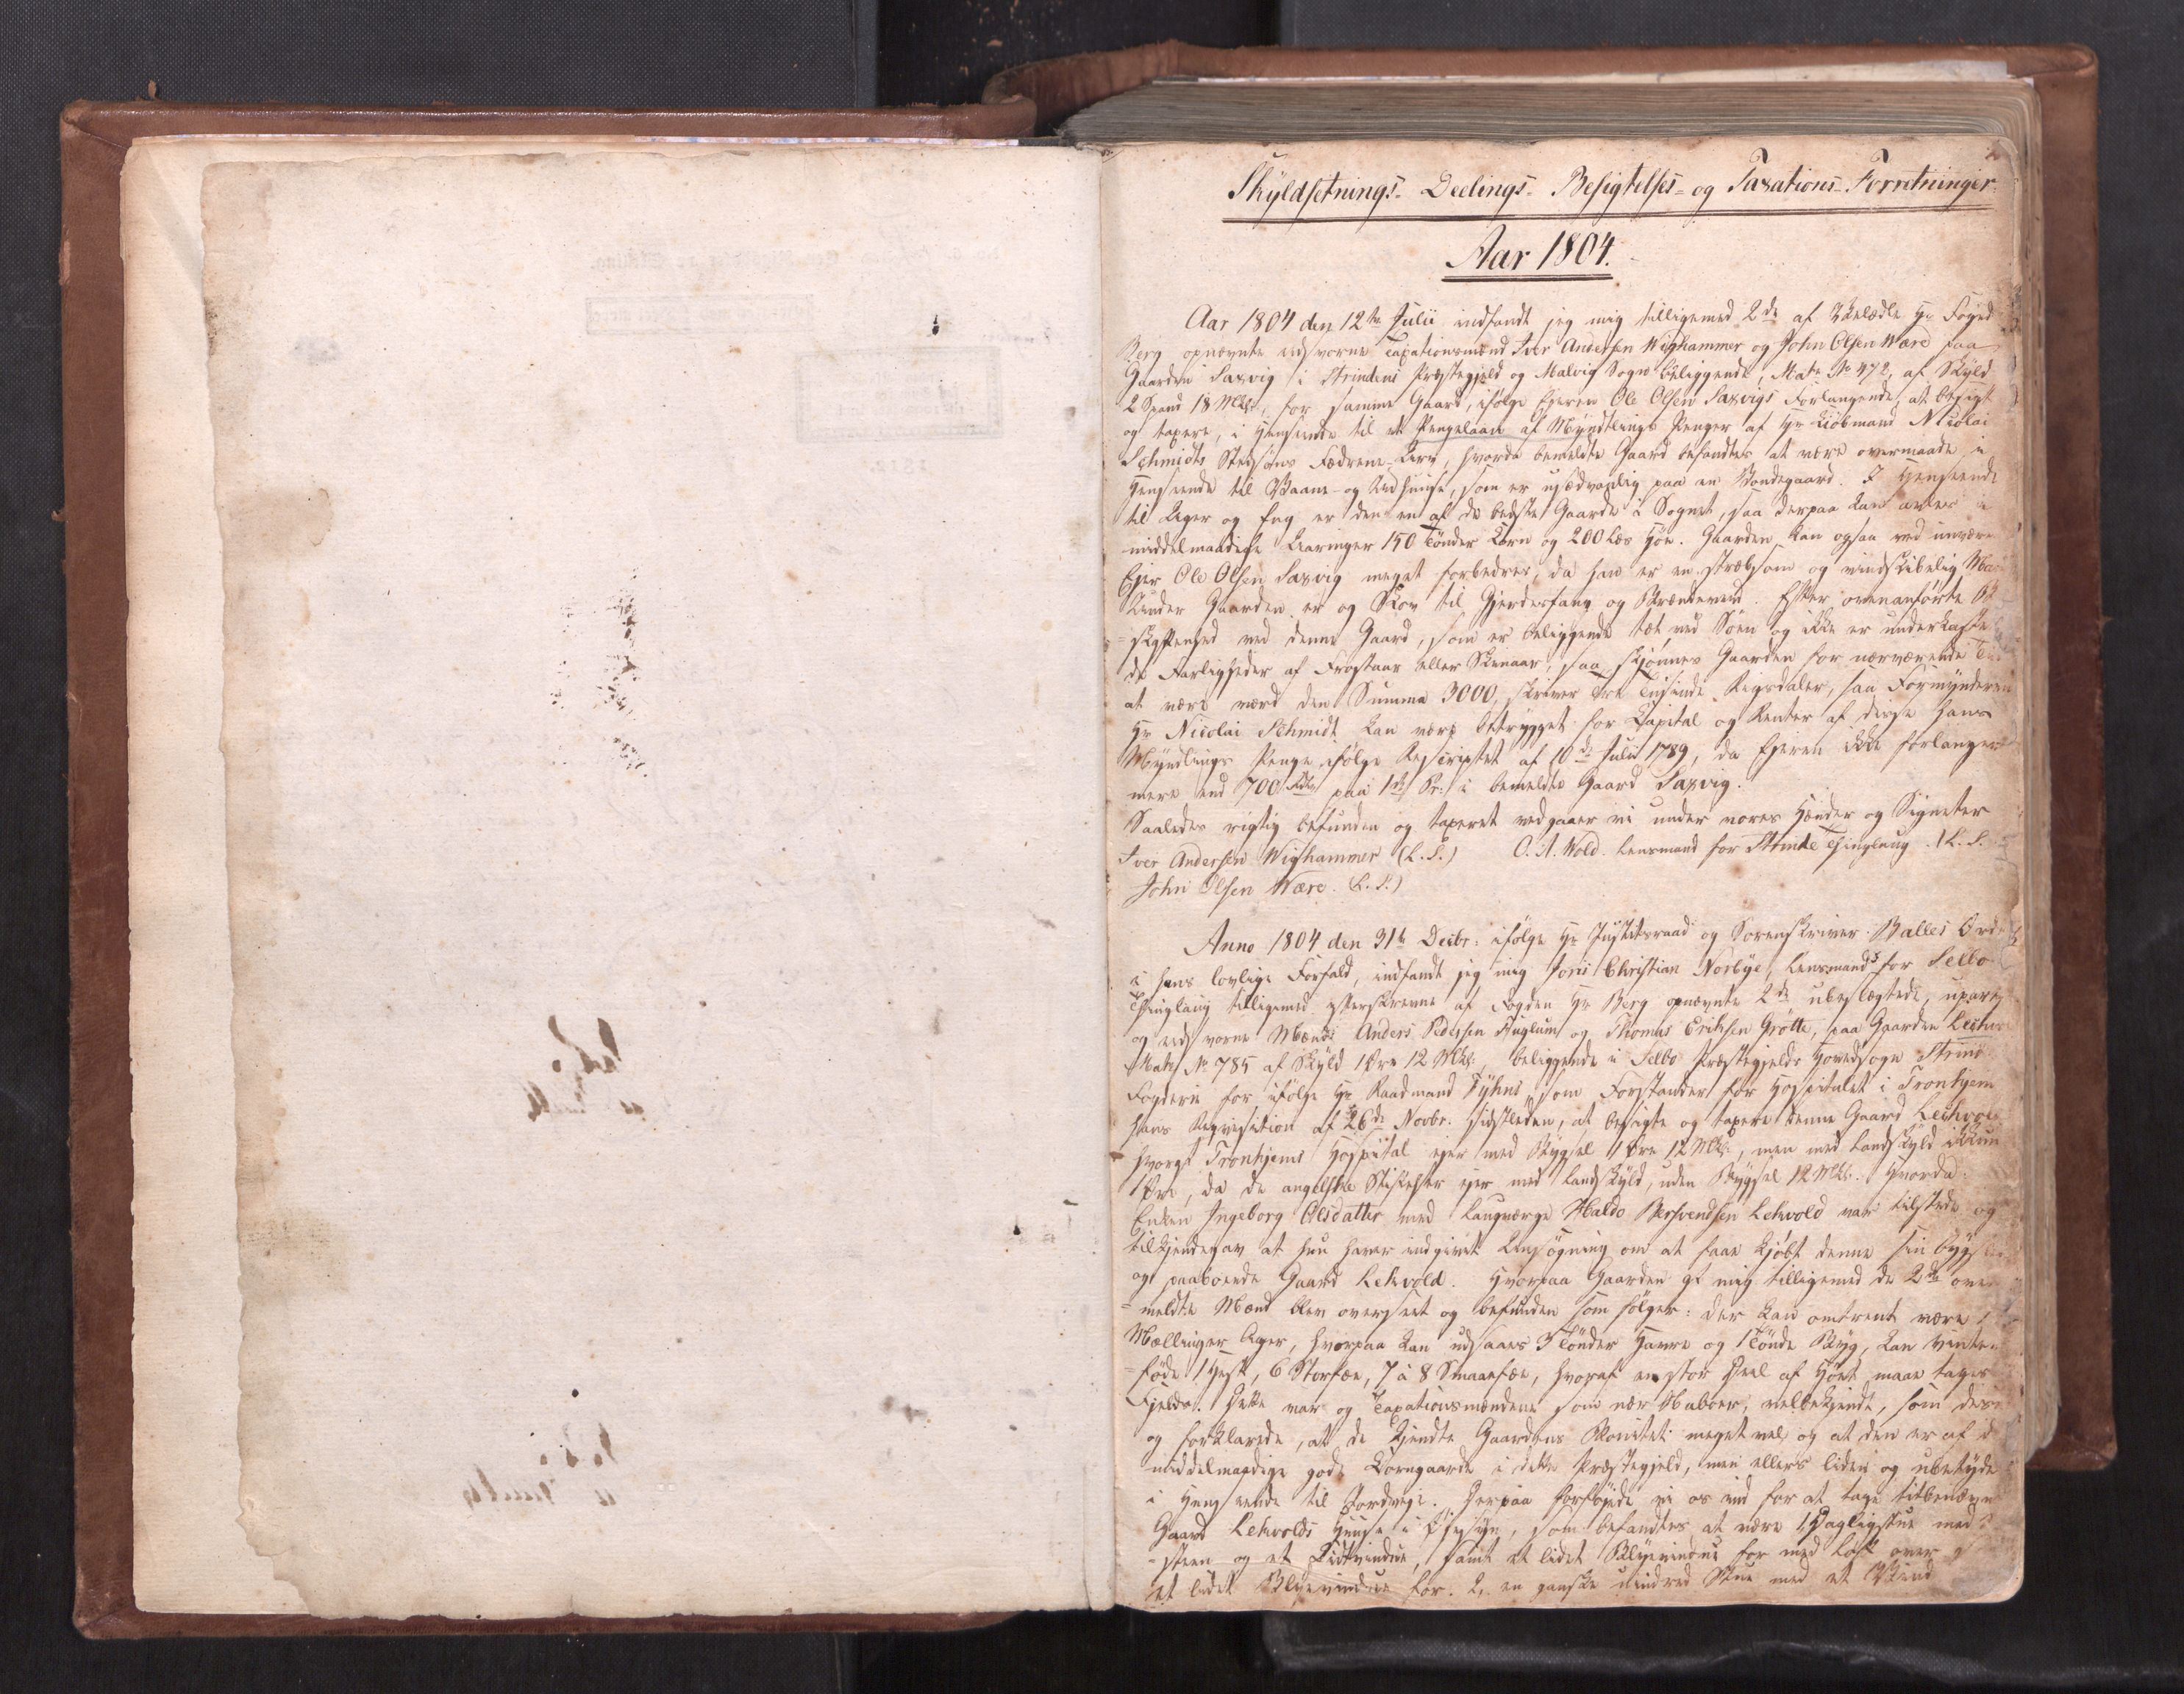 Skyldsetnings- Deelings- Besigtelses- og Taxations-Forretninger.
Aar 1804.
Aar 1804 den 12te Julii indfandt jeg mig tilligemed 2de af Hr Foged
Berg opnævnte edsvorne Taxationsmænd Iver Andersen Wighammer og John Olsen Være paa
Gaarden Saxvig i Strindens Præstegjeld og Malvig Sogn beliggende, Matr. No 472, af Skyld
2 Spand 18 Mkl., for samme Gaard, ifølge Ejeren Ole Olsen Saxvigs Forlangende, at besigte
og taxere, i Henseende til et Pengelaan af Myndtlings Penger af Hr Kiöbmand Nicolai
Schmidts Stedsöns Fædrene-Arv, hvorda bemeldte Gaard befandtes at være overmaade i
Henseende til Vaane- og Udhuuse, som er usædvanlig paa en Bondegaard. I Henseende
til Ager og Eng er den en af de bedste Gaarde i Sognet, saa derpaa kan avles i
middelmaadige Aaringer 150 Tönder Korn og 200 Læs Höe. Gaarden kan ogsaa ved nuværende
Ejer Ole Olsen Saxvig meget forbedres, da han er en stræbsom og vindskibelig Mand
Under Gaarden er og Skov til Gjerdesfang og Brændeved. Efter ovenanførte Be-
=skaffenhed ved denne Gaard, som er beliggende tæt ved Söen og ikke er underkastet
de Farligheder af Frostaar eller Skeaar, saa skjønnes Gaarden for nærværende Tid
at være værd den Summa 3000, skriver tre Tusinde Rigsdaler, saa Formynderen
Hr Nicolai Schmidt kan være betrygget for Capital og Renter af disse hans
Myndlings Penge ifølge Rescriptet af 10de Julii 1789, da Ejeren ikke forlanger
mere end 700 Rdlr paa 1te Pr: i bemeldte Gaard Saxvig.
Saaledes rigtig befunden og taxeret vedgaaer vi under vores Hænder og Signeter
Iver Andersen Wighammer (L. S.) O. A. Wold. Lensmand for Strinde Thinglaug (L. S.
John Olsen Være. (L. S.)
Anno 1804 den 31te Decbr: ifølge Hr Justitsraad og Sorenskriver Balles Ordre
i hans lovlige Forfald, indfandt jeg mig Joris Christian Norbye, Lensmand for Selboe
Thinglaug tilligemed efterskrevne af Fogden Hr Berg opnævnte 2de ubeslægtede, upartiske
og edsvorne Mænd: Anders Pedersen Fuglum og Thomas Eriksen Grötte, paa Gaarden Lechvold
Matr No 785 af Skyld 1 Øre 12 Mkl:, beliggende i Selboe Præstegjelds Hovedsogn Strinde
Fogderie for ifølge Hr Raadmand Tyhns, som Forstander for Hospitalet i Tronhjem
hans Reqvisition af 26de Novbr. sidstleden, at besigte og taxere denne Gaard Lechvold
hvoraf Tronhjems Hospital ejer med Bygsel 1 Øre 12 Mkl:, men med Landskyld ikkun
1 Øre, da de angelske Stiftelser ejer med Landskyld, uden Bygsel 12 Mkl. Hvorda:
Enken Ingeborg Olsdatter med Laugværge Haldo Bersvendsen Lekvold var tilstede og
tilkjendegav at hun haver indgivet Ansögning om at faae kjöbt denne sin bygslede
og paaboende Gaard Lekvold. Hvorpaa Gaarden af mig tilligemed de 2de oven-
=meldte Mænd blev overseet og befunden som fölger: der kan omtrent være
Mællinger Ager, hvorpaa kan udsaaes 3 Tönder Havre og 1 Tönde Byg, kan vinter-
=föde 1 Hest, 6 Storfæe, 7 à 8 Smaaefæe, hvoraf en stor Deel af Höet maae tages
Fjelds. Dette var og Taxationsmændene som nær Naboer, velbekjendt, som dess
og forklarede, at de kjendte Gaardens Bonitet meget vel, og at den er af de
middelmaadige gode Korngaarde i dette Præstegjeld, men ellers liden og ubetyde
i Henseende til Jordvei. Derpaa forföjede vi os ind for at tage titbenævnte
Gaard Lekvolds Huuse i Øjesyn, som befandtes at være 1, Dagligstue med
=steen og et Vindue, samt et lidet Blyevindue for med Loft over
et lidet Blyevindue for. 2, en ganske uindred Stue med et Vind